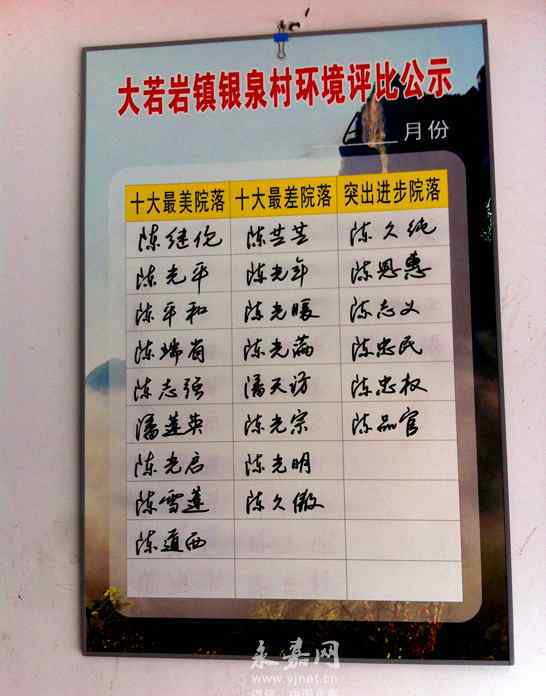 大若岩镇银泉村环境评比公示
6 月份
十大最美院落 十大最差院落 突出进步院落
陈继伦 陈芒芒 陈久纯
陈光平 陈光年 陈恩惠
陈平和 陈光暖 陈志义
陈端 陈光满 陈忠民
陈志强 潘天访 陈忠权
潘莲英 陈光宗 陈品官
陈光启 陈光明
陈雪莲 陈久傲
陈道西
永嘉网
www.yjnet.cn